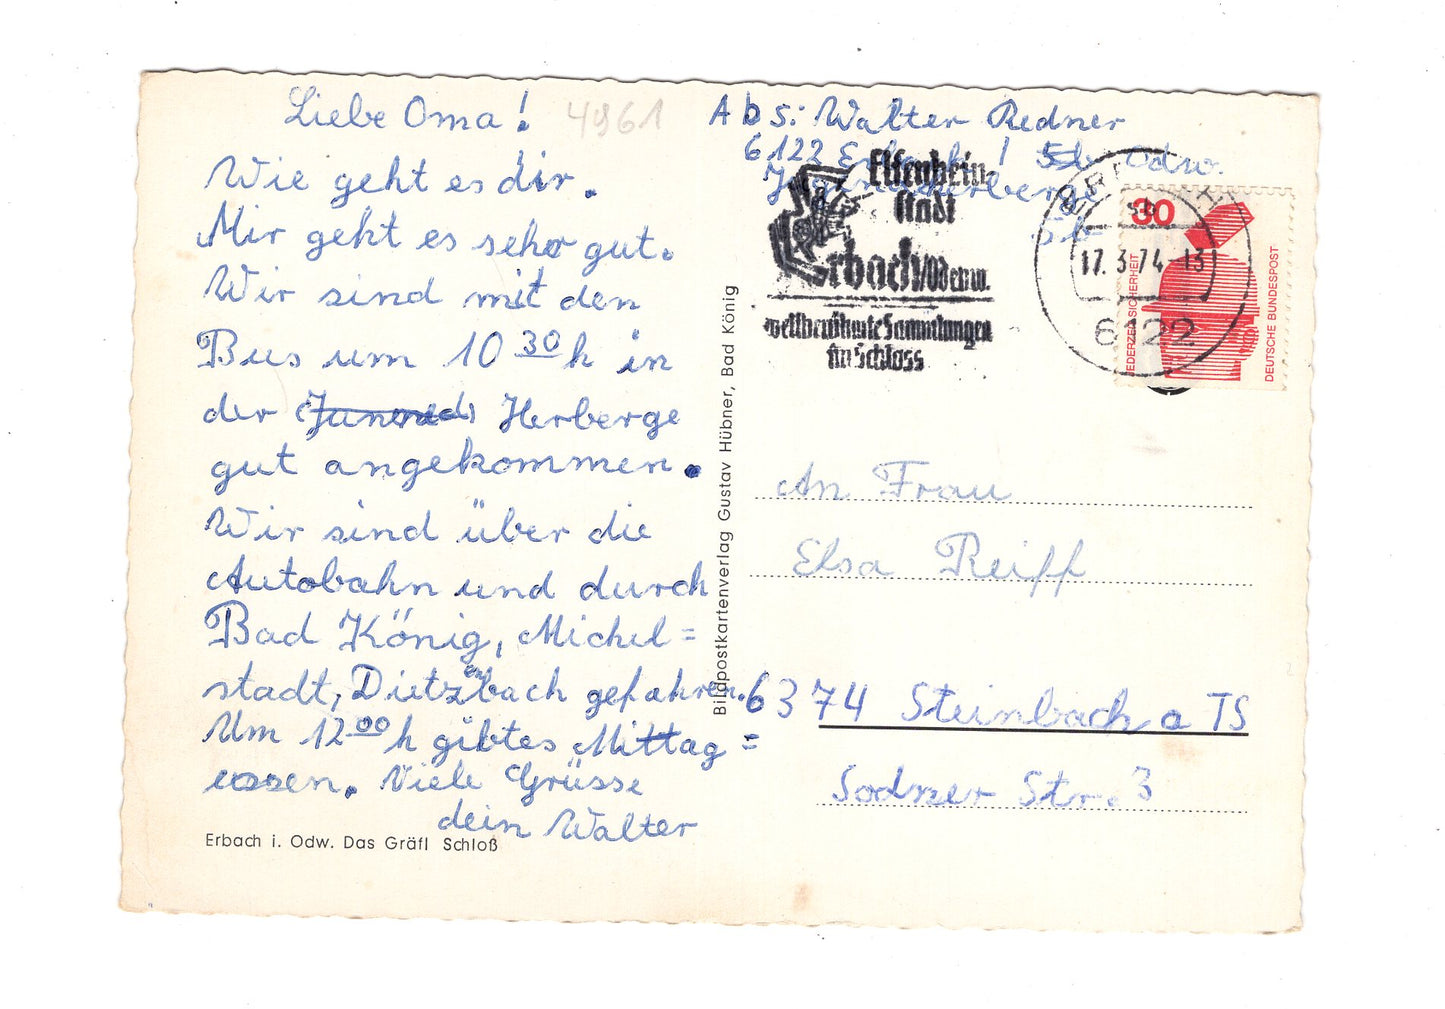 Liebe Oma!
4961
Wie geht es dir.
Mir geht es sehr gut.
Wir sind mit den
Bus um 10 30 h in
der Herberge
gut angekommen.
Wir sind über die
Autobahn und durch
Bad König, Michel=
stadt, Dietzbach gefahren.
Um 12 00 h gibtes Mittag=
essen. Viele Grüsse
dein Walter
Erbach i. Odw. Das Gräfl Schloß
Bildpostkartenverlag Gustav Hübner, Bad König
Abs: Walter Redner
6122 Erbach / Odw.
Jugendherberge
Elfenbein-
stadt
Erbach/Odenw.
weltberühmte Sammlungen
im Schloss
17.3.74-13
6122
30
JEDERZEIT SICHERHEIT
DEUTSCHE BUNDESPOST
An Frau
Elsa Reiff
6374 Steinbach a TS
Str. 3